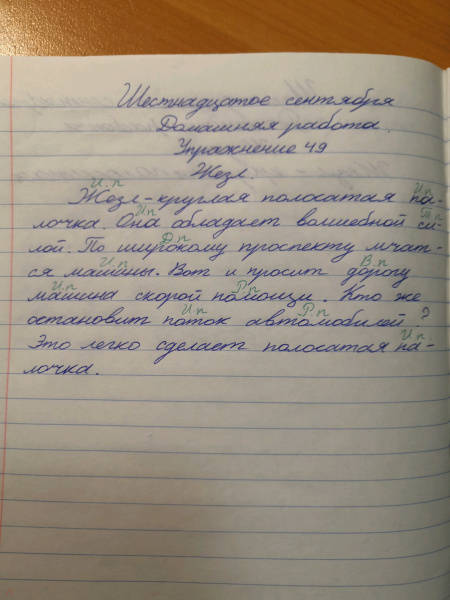 Шестнадцатое сентября
Домашняя работа.
Упражнение 49
Жезл.
И.п И.п
Жезл-круглая полосатая па-
И.п Т.п
лочка. Она обладает волшебной си-
Д.п
лой. По широкому проспекту мчат-
И.п В.п
ся машины. Вот и просит дорогу
И.п Р.п
машина скорой помощи. Кто же
И.п Р.п
остановит поток автомобилей?
И.п
Это легко сделает полосатая па-
лочка.